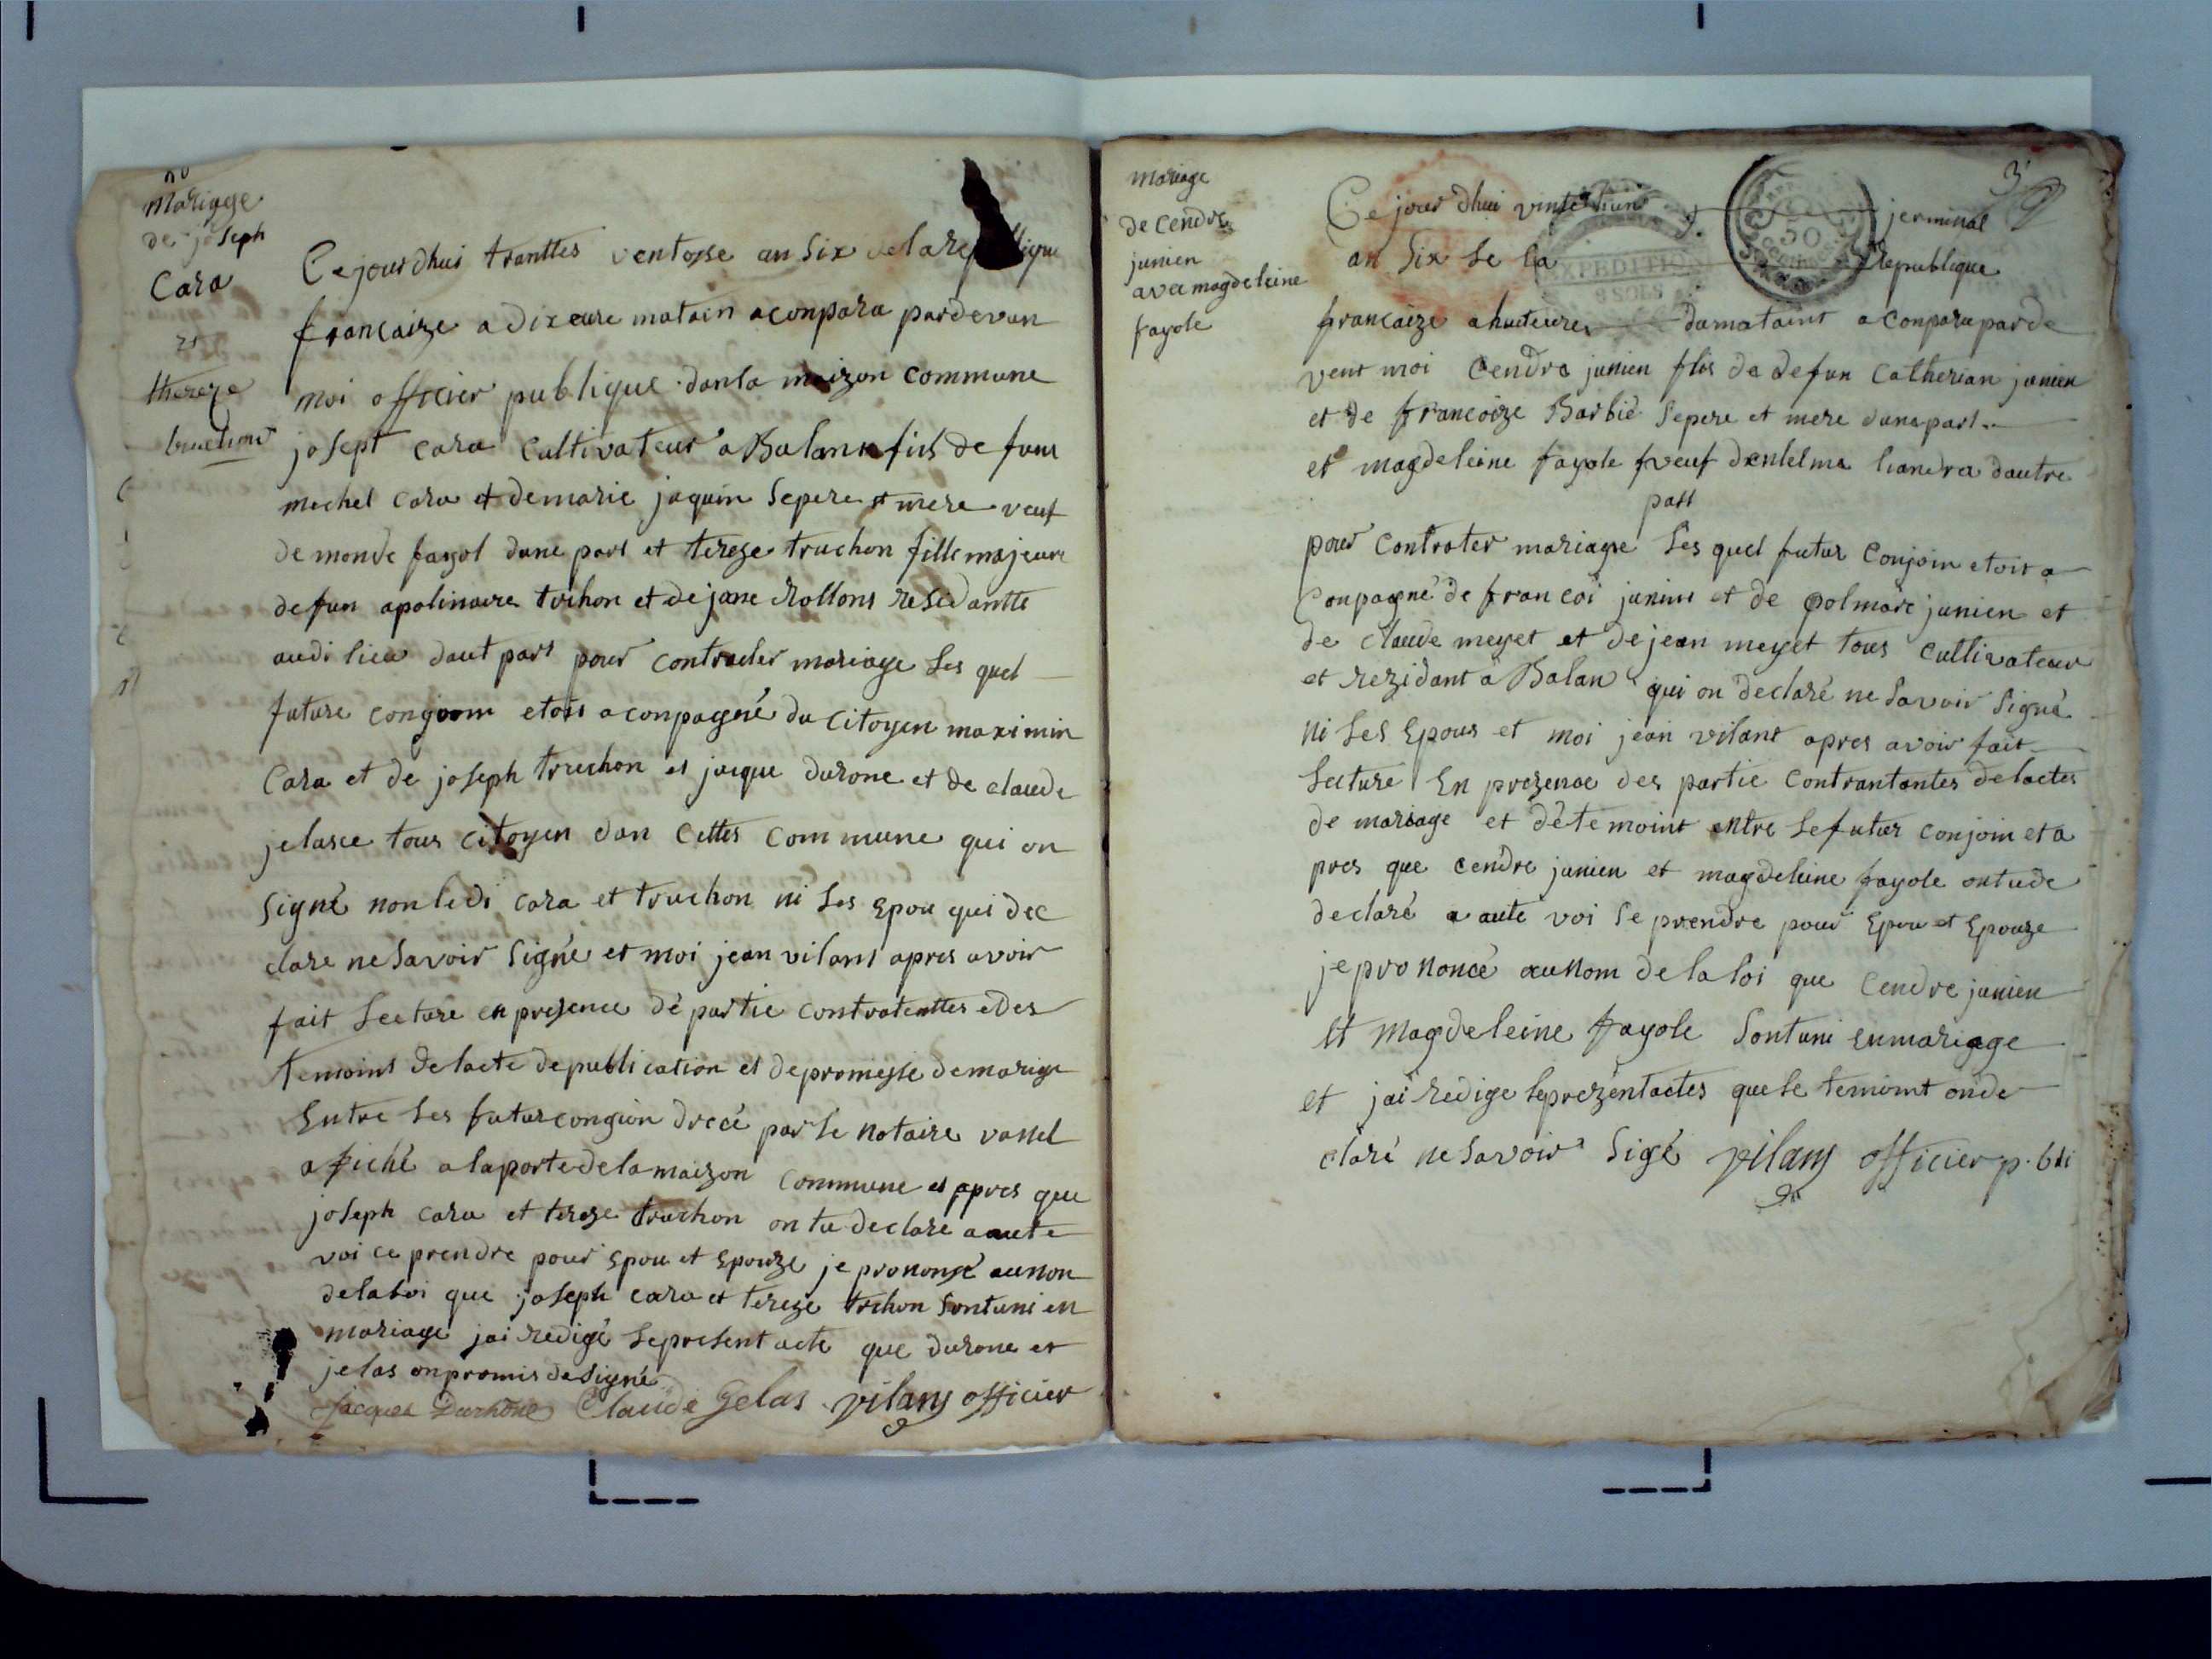 mariage
de joseph
Cara
et
thereze
truchont
Cejourdhui tranttes ventosse an Six de la
francaize a dix eure matoin aconpara pardevan
moi officier publique danla maizon commune
josept cara cultivateur a Balann fils de funt
mechel cara et demarie jaquin sepere et mere veuf
de monde fayol dune part et tereze truchon fille majeure
defun apolinaire tuchon et de jane Rollons residantte
audi lieu daut part pour contracter mariage les quel
future conjoin etoit aconpagné du citoyen maximin
Cara et de joseph truchon et jacque durone et de claude
jelasce tous citoyen dan cettes commune qui on
signé non ledi cara et truchon ni les epou qui dec
clare ne savoir signé et moi jean vilans apres avoir
fait lecture en presence dé partie contratenttes edes
temoins de lacte depublication et depromesse demariage
Entre les futur congion drecé par le notaire vanel
afiché a laporte dela maizon commune et apres que
joseph cara et tereze truchon on tu declare a aute
voi ce prendre pour epou et epouze je prononsé aunon
delaloi que joseph cara et tereze trchon sontuni en
mariage jai redigé lepresent acte que durone et
jelas onpromis de signé
Jacques Durhône Claude Gelas vilans officier
3
mariage
de cendre
junien
avec magdeleine
fayole
Ce jour dhui vintehuit jerminal
an six de la Republique
francaize a huiteures damataint a conparu parde
vent moi Cendre junien fils de defun Catherian junien
et de francoize Barbié sepere et mere dunepart
et magdeleine fayole fveuf liandra dautre
part
pour contrater mariage les quel futur conjoin etoit a
Conpagné de francoi junien et de polmare junien et
de claude meyet et de jean meyet tous cultivateur
et rezidant a Balan qui on declaré ne savoir signé
ni les epous et moi jean vilans apres avoir fait
lecture en prezence des partie contrantantes delactes
de mariage et dé temoint entre lefutur conjoin et a
pres que cendre junien et magdeleine fayole ontude
declaré a aute voi se prendre pour epou et epouze
je prononcé aunom de la loi que cendre junien
et magdeleine fayole sontuni enmariage
et jai redige leprezentactes que le temoint onde
claré ne savoir sigé vilans officier p.bli
EXPEDITION
8 SOLS
50